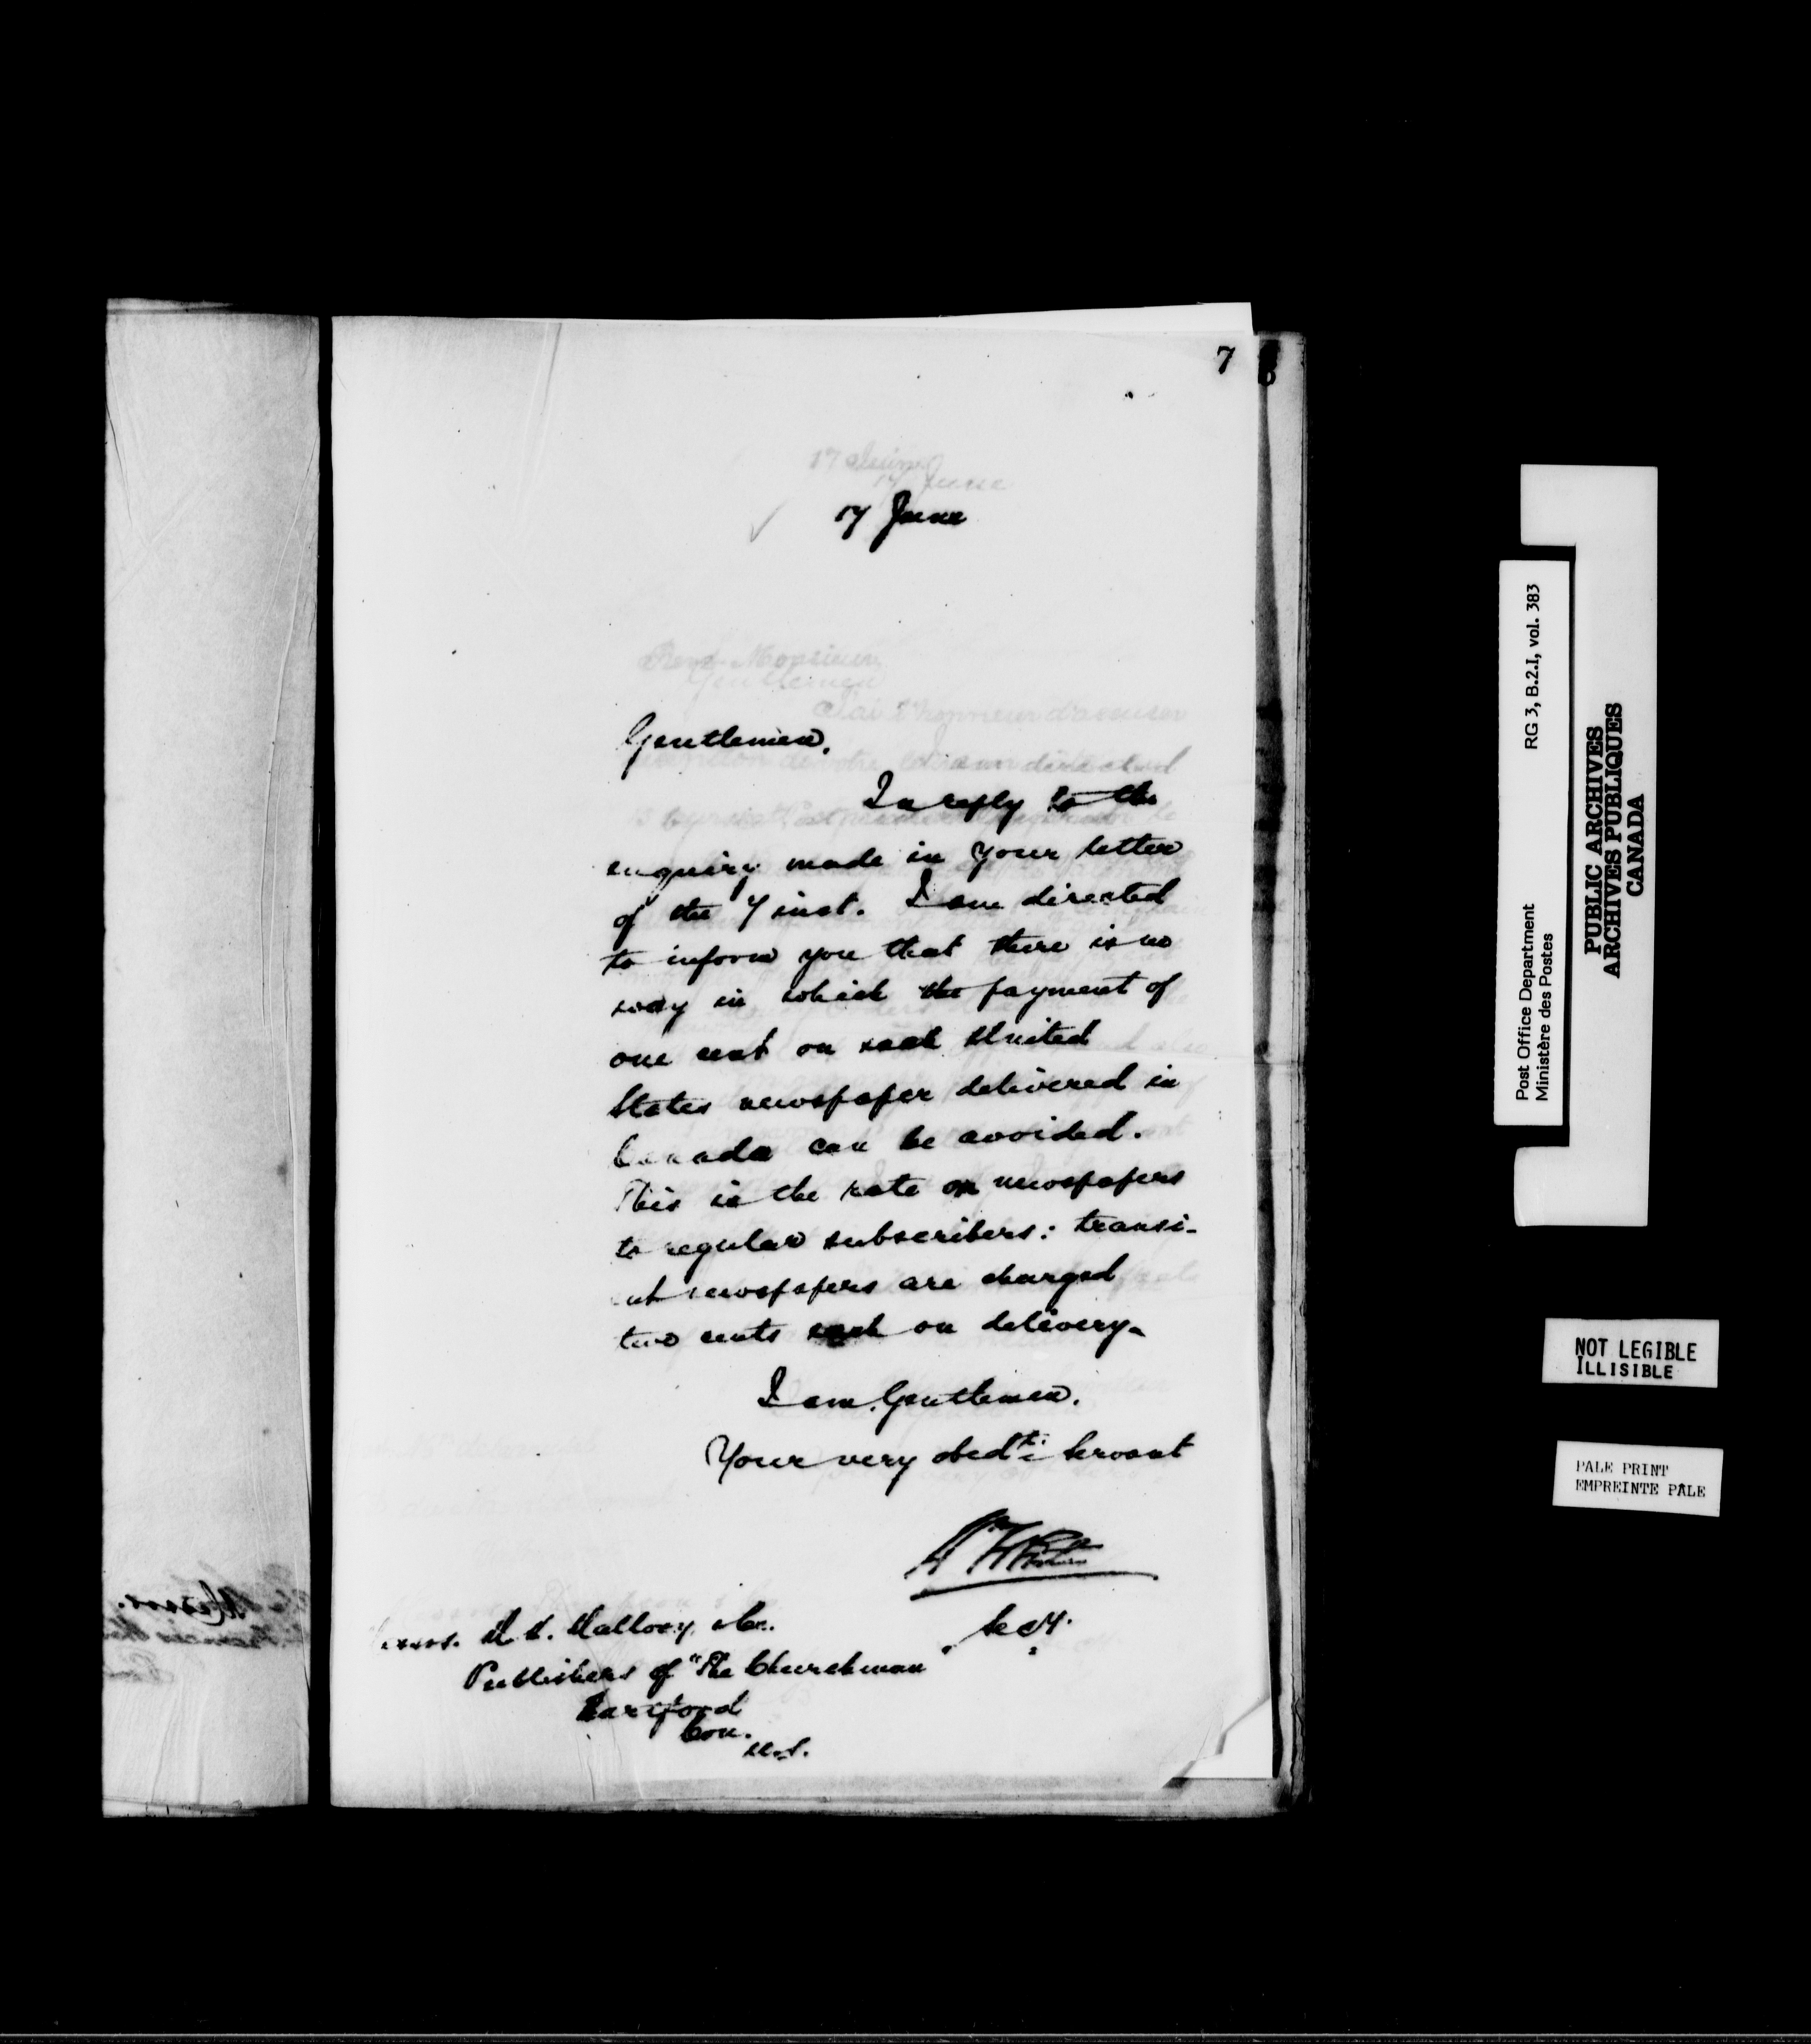 7
17 June
Gentlemen,
In reply to the
enquiry made in your letter
of the 7 inst. I am directed
to inform you that there is no
way in which the payment of
one cent on each United
States newspaper delivered in
Canada can be avoided.
This is the rate on newspapers
to regular subscribers: transi-
ent newspapers are charged
two cents each on delivery.
I am, Gentlemen.
Your very obedt. Servant
Secy.
Messrs. Mallory & Co.
Publishers of "The Churchman"
Hartford
Con.
U.S.
Post Office Department RG 3, B.2.I, vol. 383
Ministère des Postes
PUBLIC ARCHIVES
ARCHIVES PUBLIQUES
CANADA
NOT LEGIBLE
ILLISIBLE
PALE PRINT
EMPREINTE PÂLE